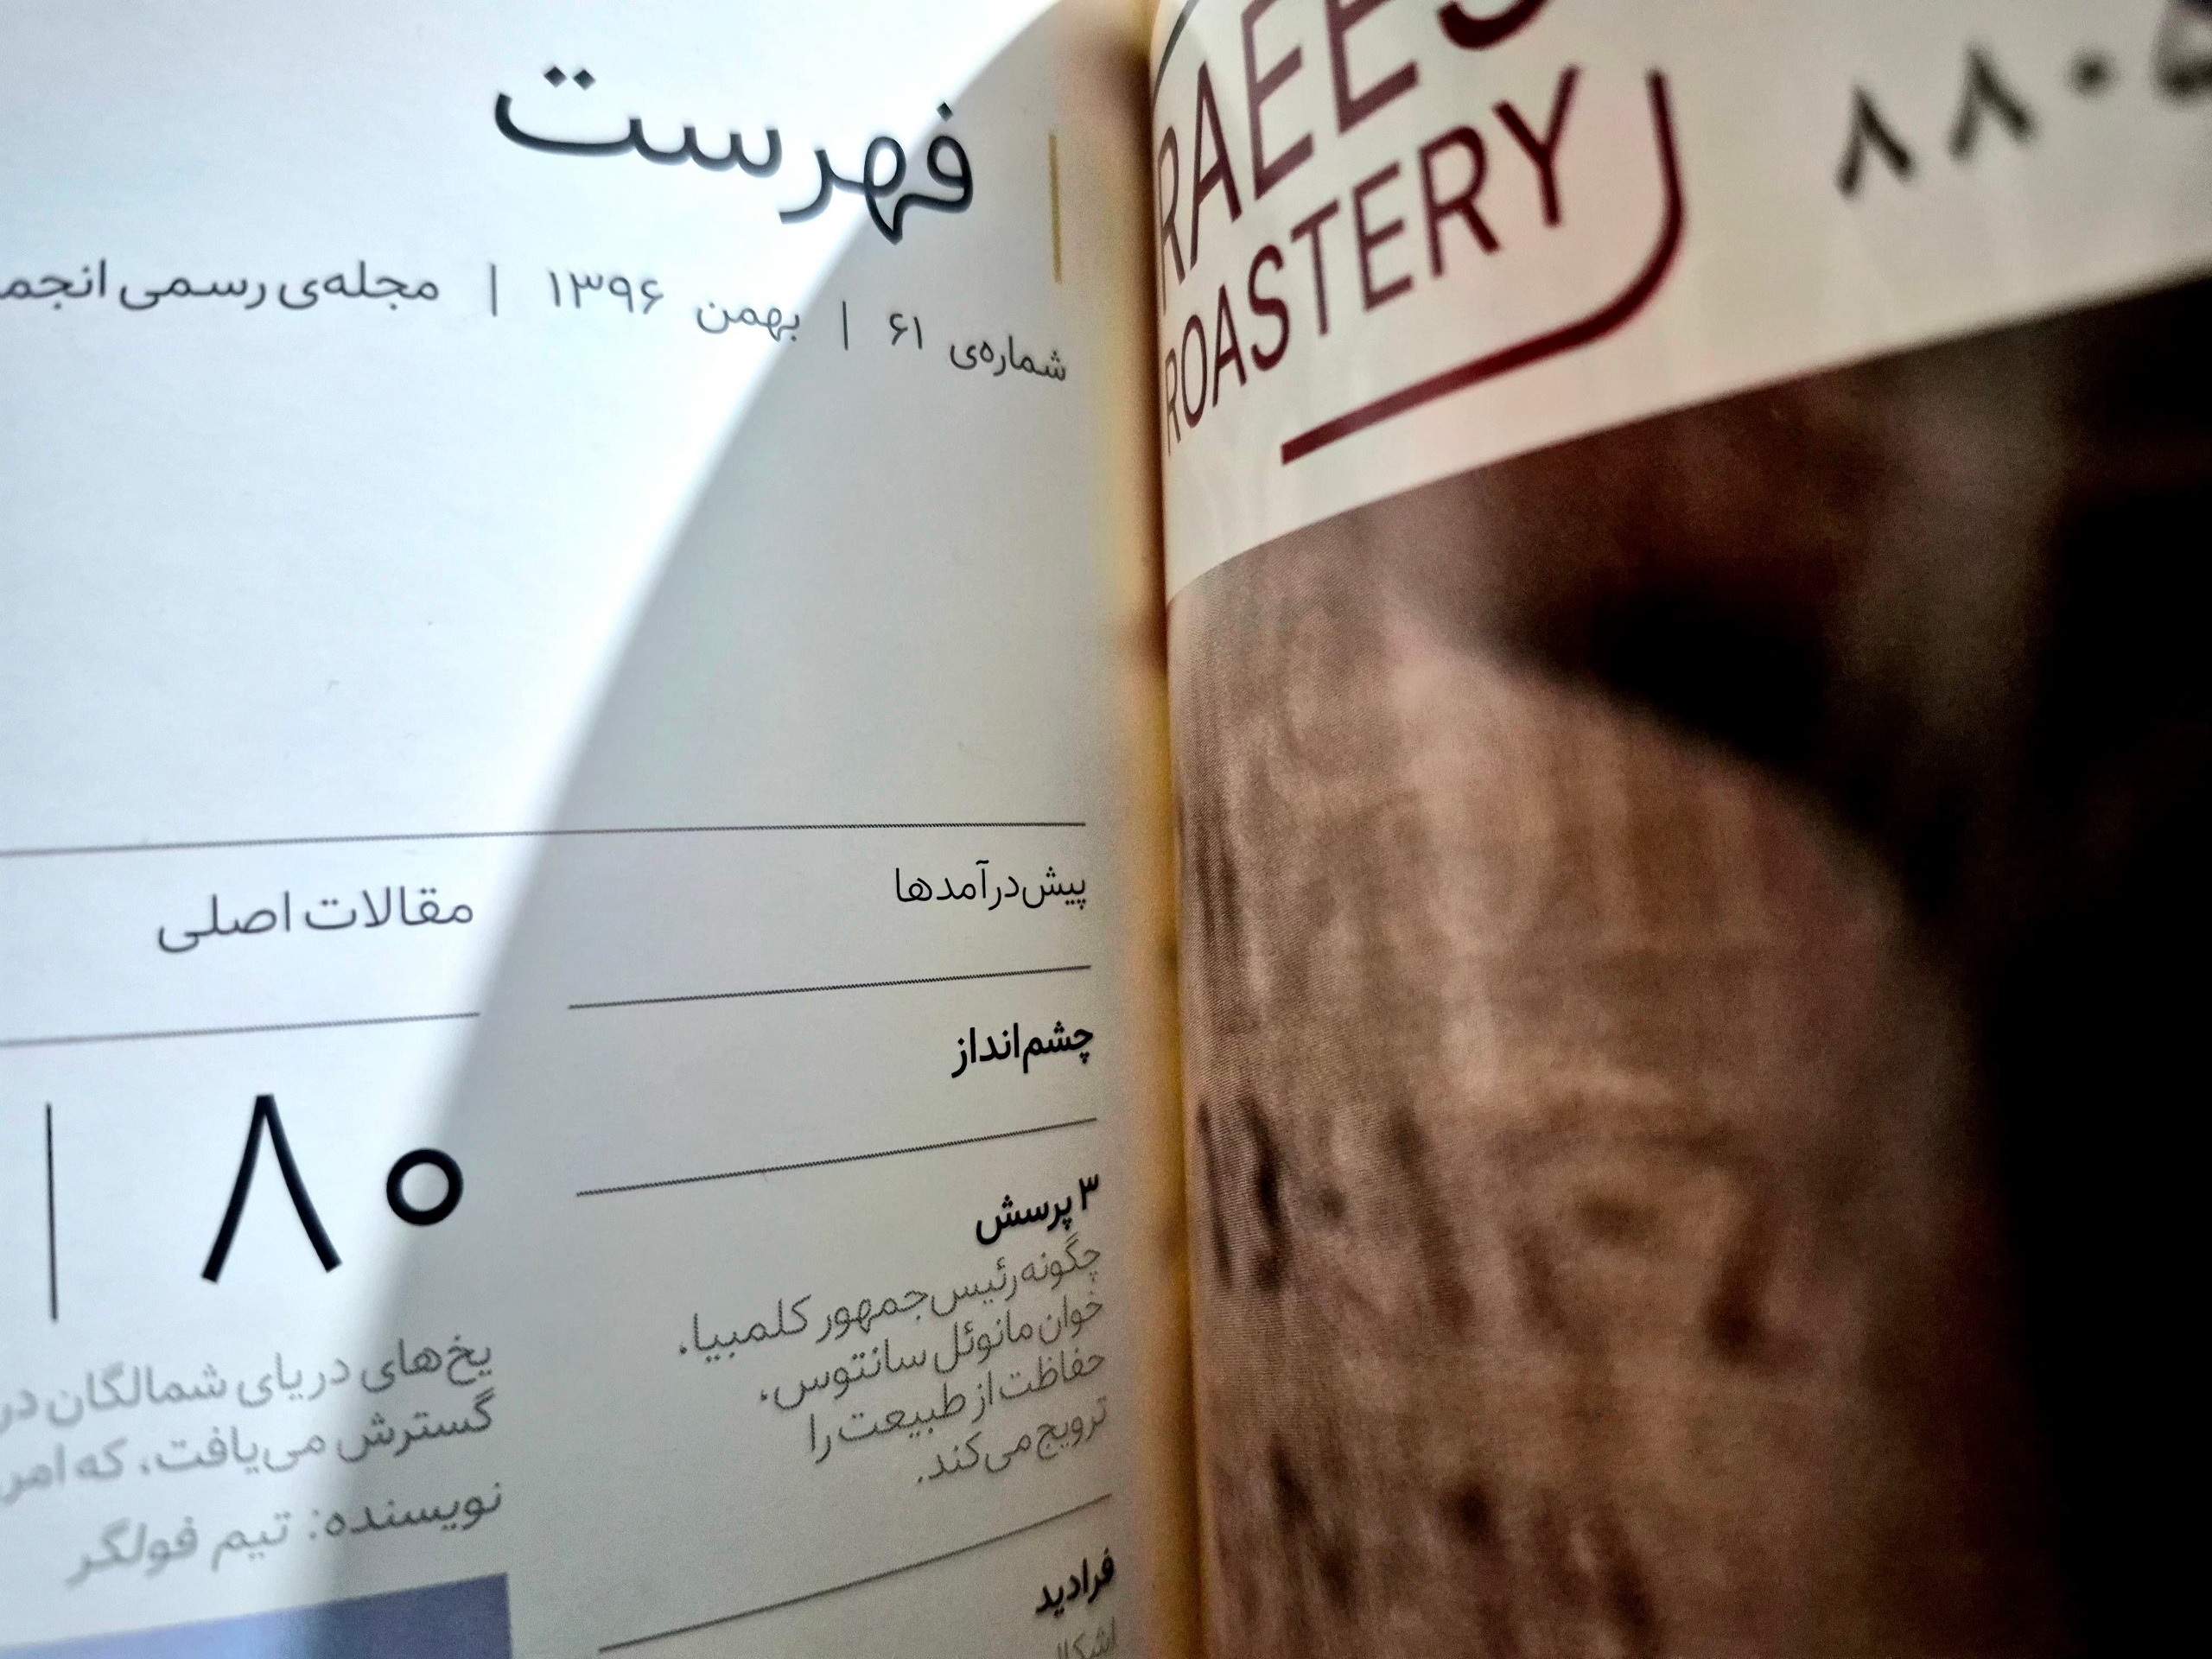 فهرست
شماره‌ی ۶۱ | بهمن ۱۳۹۶ | مجله‌ی رسمی
پیش‌درآمدها
چشم‌انداز
۳ پرسش
چگونه رئیس‌جمهور کلمبیا،
خوان مانوئل سانتوس،
حفاظت از طبیعت را
ترویج می‌کند.
فرادید
اشکال
مقالات اصلی
۸۰
یخ‌های دریای شمالگان در
گسترش می‌یافت، که
نویسنده: تیم فولگر
RAEES
ROASTERY
۸۸۰۵